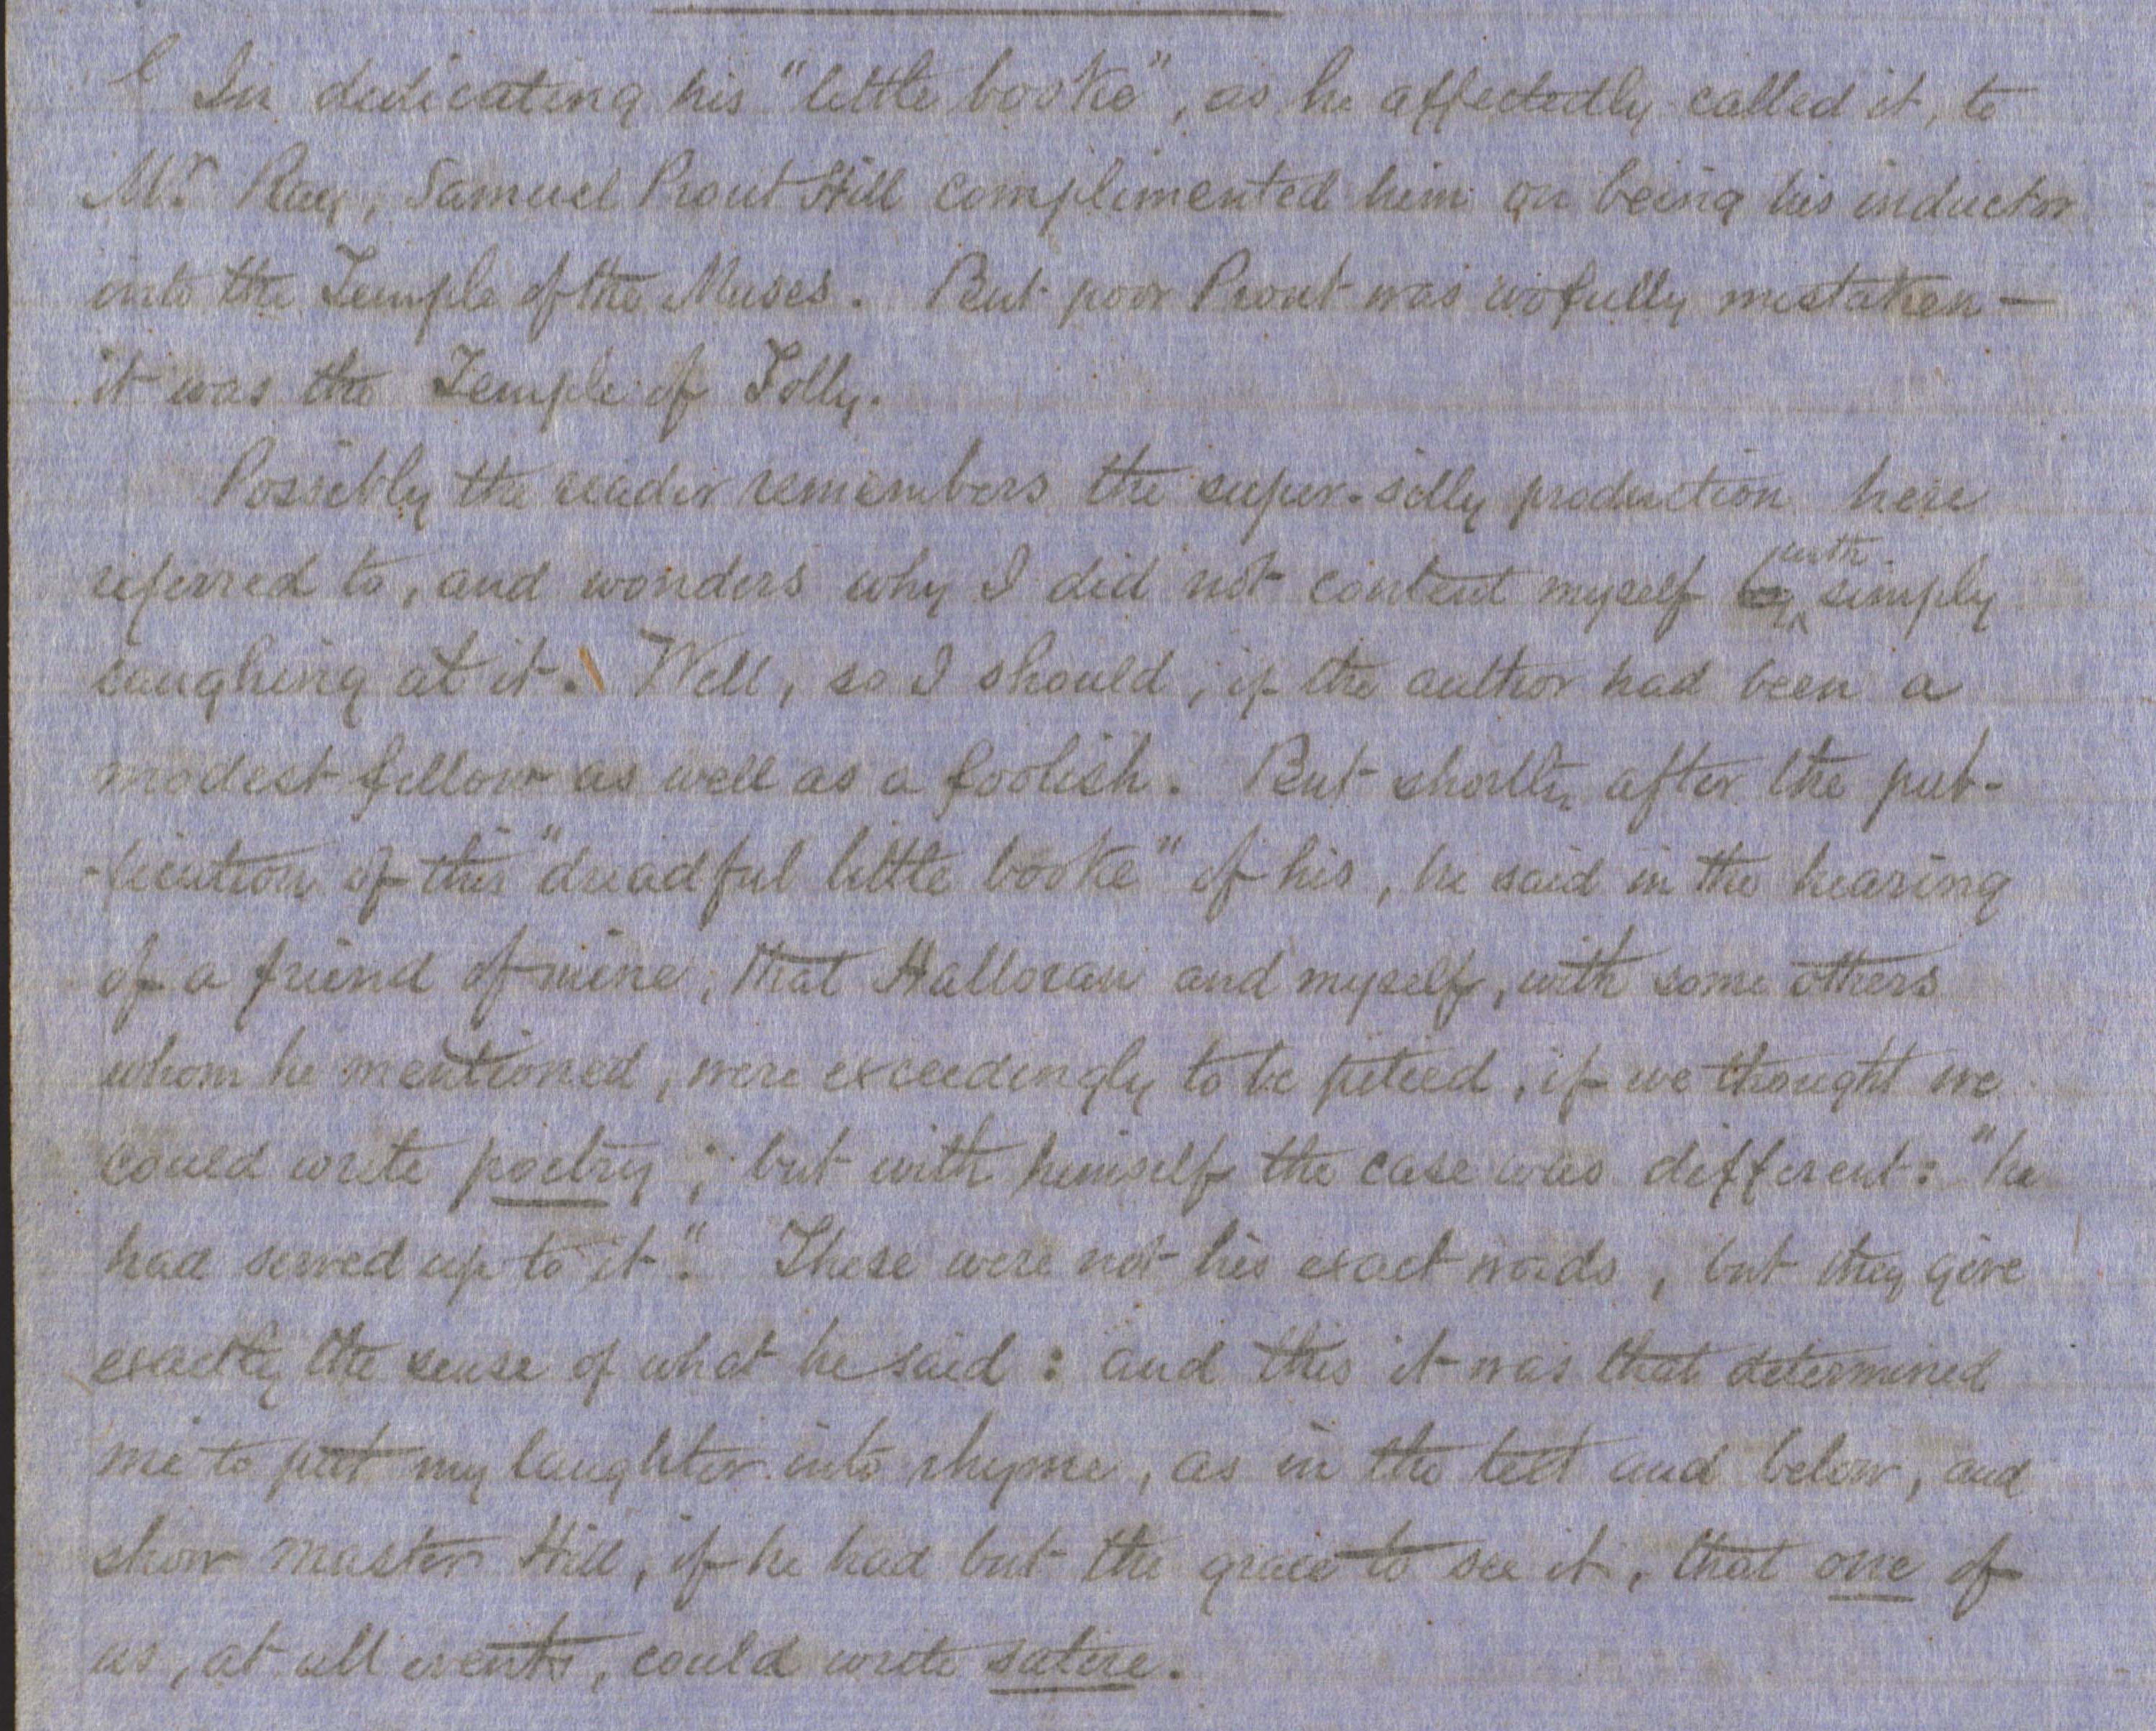 l In dedicating his "little booke", as he affectedly called it, to
Mr. Rae, Samuel Prout Hill complimented him on being his inductor
into the Temple of the Muses. But poor Prout was wofully mistaken —
it was the Temple of Folly.
Possibly the reader remembers the super-silly production here
referred to, and wonders why I did not content myself by with simply
laughing at it. Well, so I should, if the author had been a
modest fellow as well as a foolish. But shortly after the pub-
-lication of this "dreadful little booke" of his, he said in the hearing
of a friend of mine, that Halloran and myself, with some others
whom he mentioned, were exceedingly to be pitied, if we thought we
could write poetry; but with himself the case was different: "he
had served up to it". These were not his exact words, but they give
exactly the sense of what he said: and this it was that determined
me to put my laughter into rhyme, as in the text and below, and
show master Hill, if he had but the grace to see it, that one of
us, at all events, could write satire.